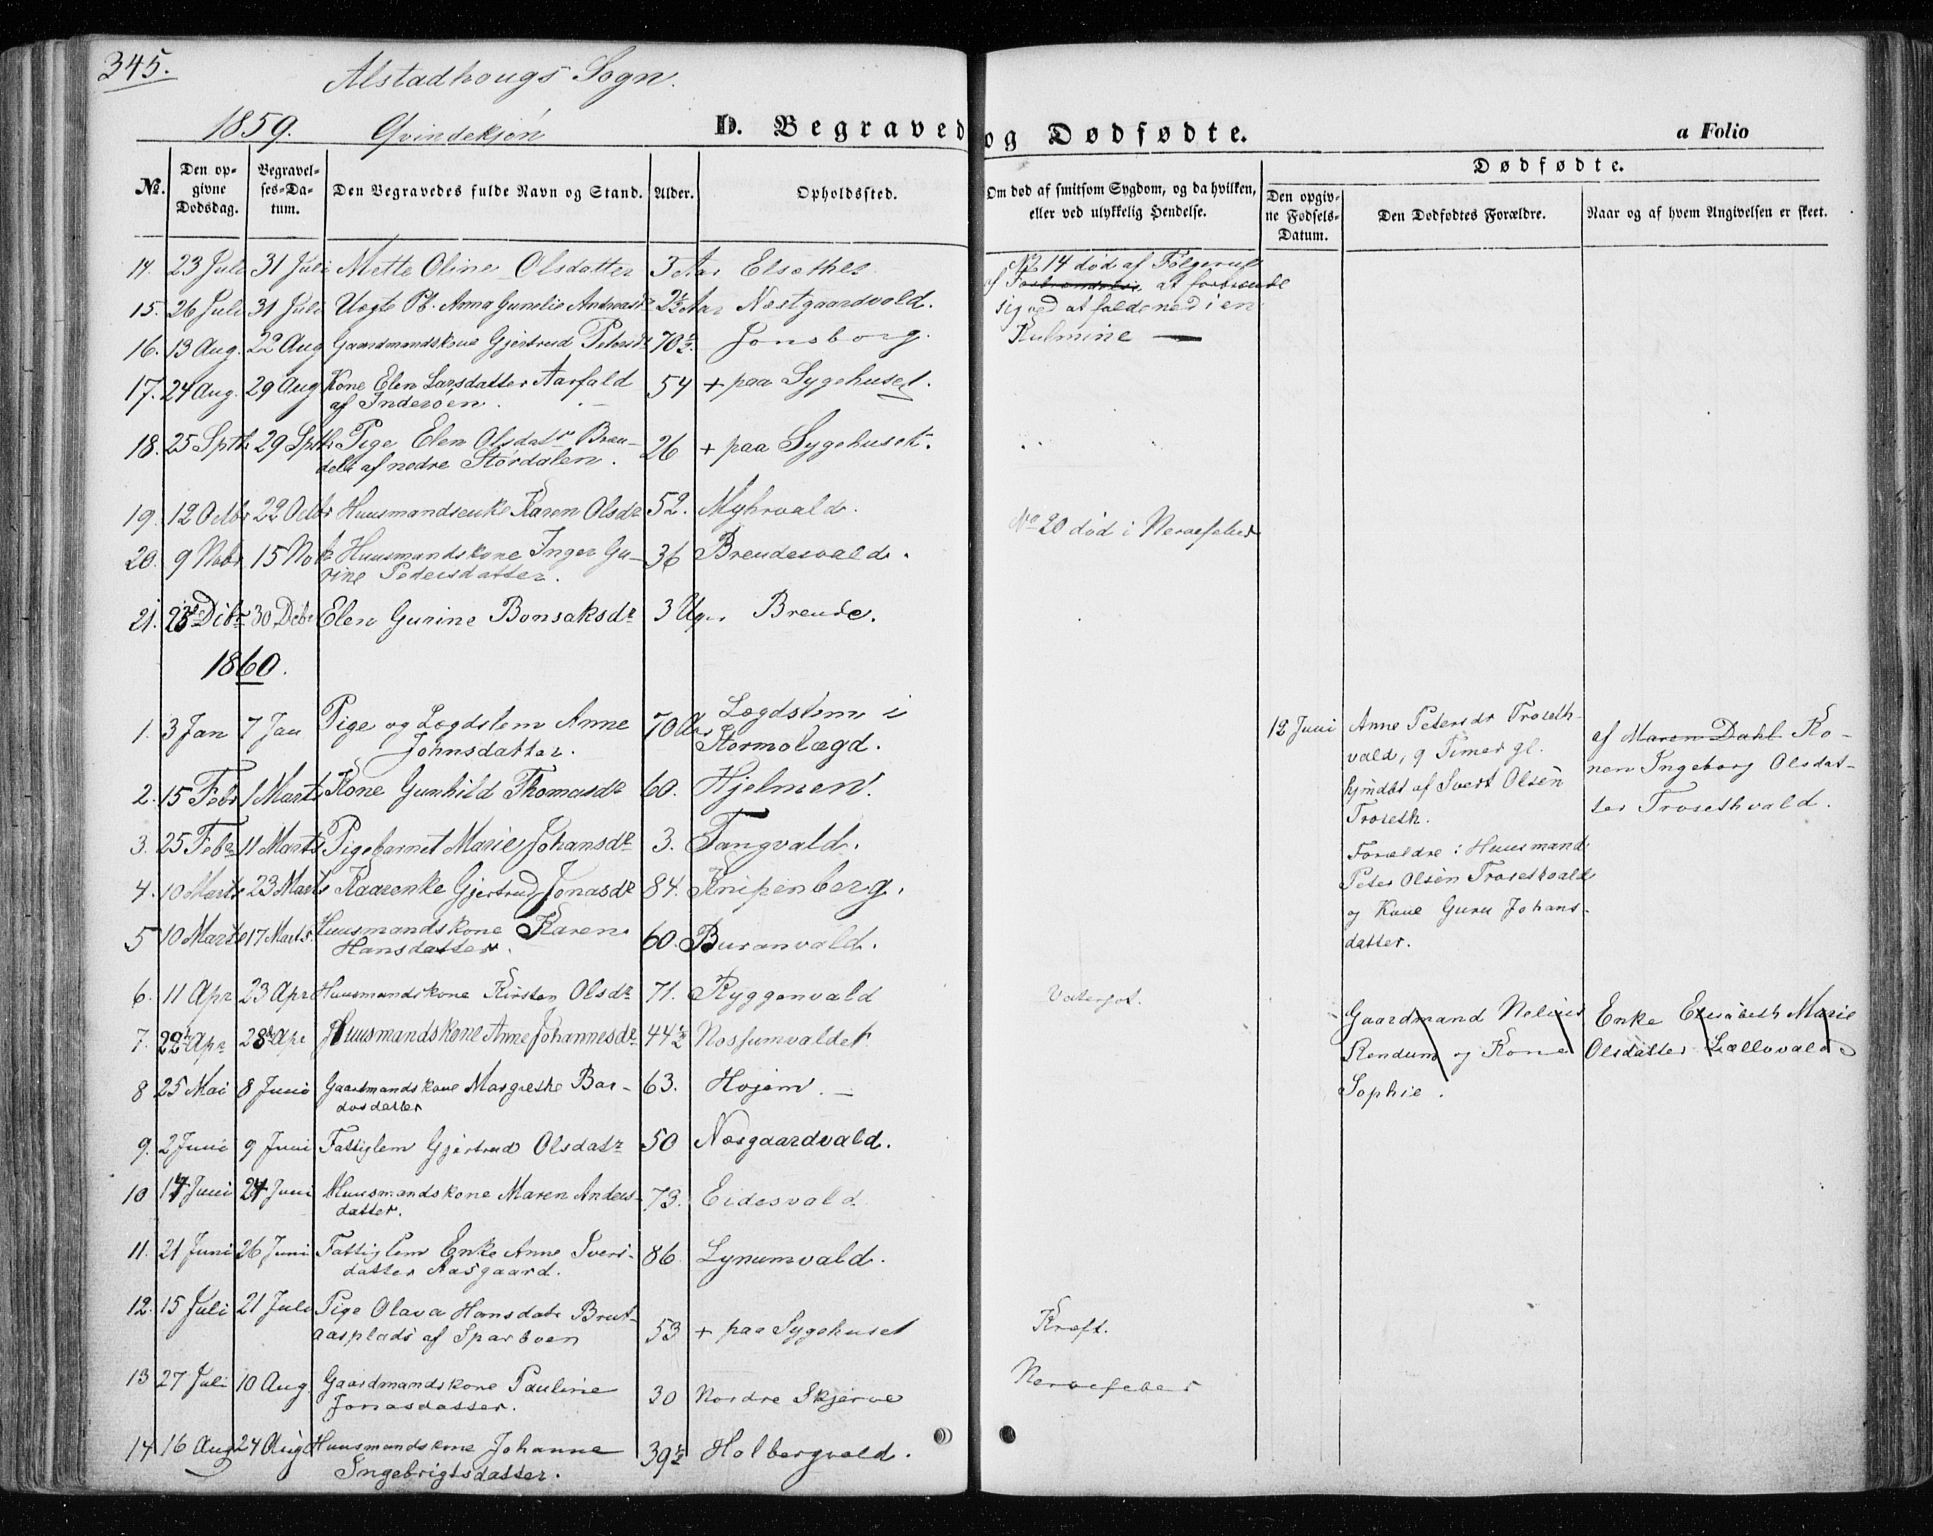 345.
Alstadhougs Sogn.
1859. Qvindekjøn D. Begravede og Dødfødte. a Folio
No. Den opgivne Dødsdag. Begravelses-Datum. Den Begravedes fulde Navn og Stand. Alder. Opholdssted. Om død af smitsom Sygdom, og da hvilken, eller ved ulykkelig Hendelse. Dødfødte.
Den opgivne Fødsels-Datum. Den Dødfødtes Forældre. Naar og af hvem Angivelsen er skeet.
14. 23 Juli 31 Juli Mette Oline Olsdatter 3 Aar
15. 26 Juli 31 Juli Uegte Pb. Anna Gurelie Andreasdr 2½ Aar Nestgaardvald.
16. 13 Aug. 22 Aug Gaardmandskone Gjertrud Petersdr 70½. Jonsborg.
17. 24 Aug. 29 Aug Kone Elen Larsdatter Aarfald
af Inderøen. 54 + paa Sygehuset.
18. 25 Septb 29 Septb Pige Elen Olsdatr
af nedre Størdalen. 26 + paa Sygehuset.
19. 12 Octbr 22 Octbr Huusmandsenke Karen Olsdr 52. Myhrvald.
20. 9 Nobr 15 Nob Huusmandskone Inger Gu-
rine Pedersdatter. 36 Breudesvald.
21. 30 Debr Elen Gurine Bonsaksdr 3 Uger Breude.
No 14 død af Følgerne
af at forbrænde
sig ved at falde ned i en
Kulmine —
No 20 død i Nervefeber
1860.
1. 3 Jan 7 Jan Pige og Lægdslem Anne
Johnsdatter. 70 Aar Lægdslem i
Stormolægd.
2. 15 Febr 1 Marts Kone Gunhild Thomasdr 60. Hjelmen.
3. 25 Febr 11 Marts Pigebarnet Marie Johansdr 3. Tangvald.
4. 10 Marts 23 Marts Kaarenke Gjertrud Jonasdr 84. Knipenberg.
5 10 Marts 17 Marts. Huusmandskone Karen
Hansdatter. 60. Buranvald.
6. 11 Apr 23 Apr Huusmandskone Kirsten Olsdr 71. Ryggenvald Vatersot.
7. 22 Apr 28 Apr Huusmandskone Anne Johannesdr 44½ Nossumvaldet
8 25 Mai 8 Juni Gaardmandskone Margrethe Bar-
dosdatter 63. Hojem. —
9. 2 Juni 9 Juni Fattiglem Gjertrud Olsdatr 50 Nesgaardvald.
10 14 Juni 24 Juni Huusmandskone Maren Anders-
datter. 73. Eidesvald.
11. 21 Juni 26 Juni Fattiglem Enke Anne Ivers-
datter Aasgaard. 86 Lynumvald.
12. 15 Juli 21 Juli Pige Olava Hansdatr
af Sparboen 53 + paa Sygehuset Kræft.
13 27 Juli 10 Aug Gaardmandskone Pauline
Jonasdatter. 30 Nordre Skjerve Nervefeber
14 16 Aug 24 Aug Huusmandskone Johanne
Ingebrigtsdatter. 39½ Holbergvald.
12 Juni Anne Petersdr Troseth-
vald, 9 Timer gl.
hjmdbt af Sivert Olsen
Troseth.
Forældre: Huusmand
Peter Olsen Trosethvald
og Kone Guru Johans-
datter.
af Maren Dahl Ko-
nen Ingeborg Olsdat-
ter Trosethvald.
Gaardmand Nelius
Rendum og Kone
Sophie.
Enke Elisabeth Marie
Olsdatter